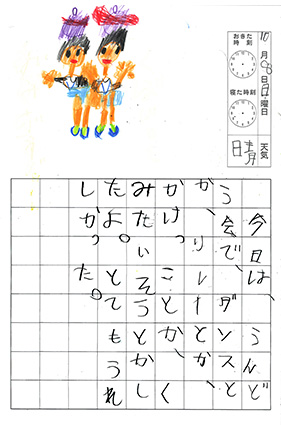 10月8日日曜日
おきた時刻
寝た時刻
天気
晴
今日は、うんど
う会で、ダンスと
か、リレーとか、
かけっことか、く
みたいそうとかし
たよ。とてもうれ
しかった。